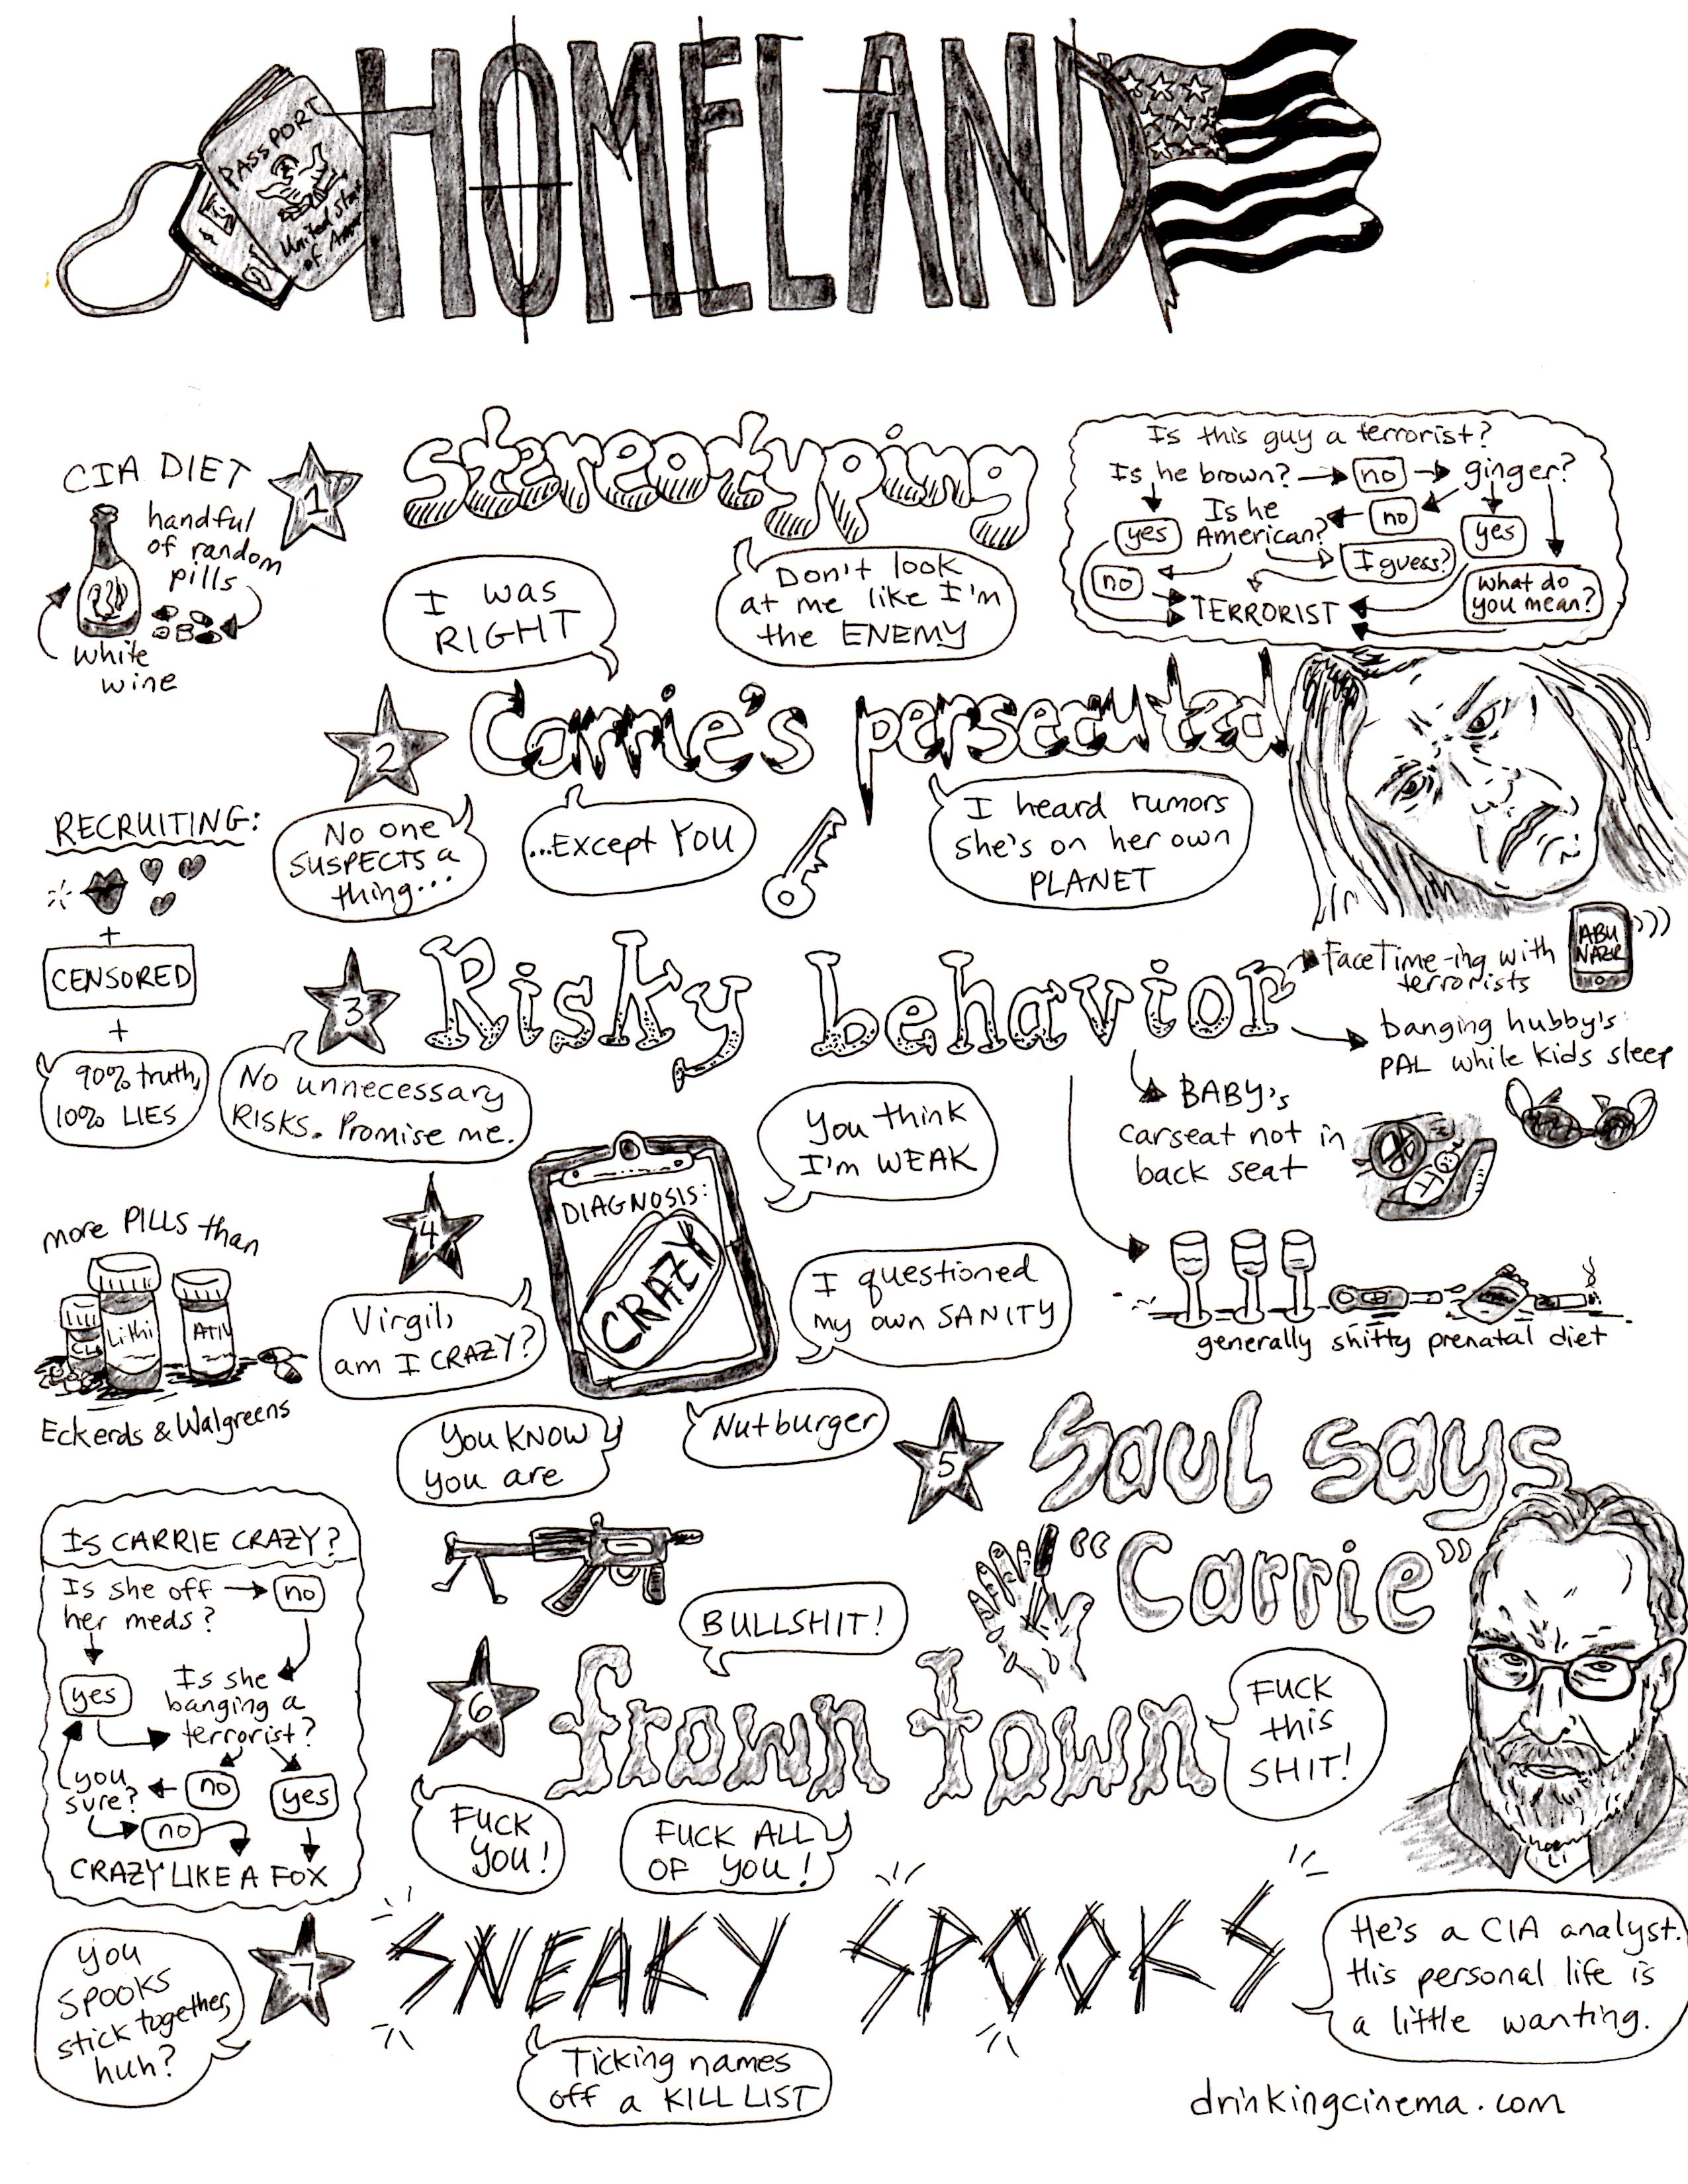 PASSPORT
United Sta
of Amer
HOMELAND
CIA DIET
handful
of random
pills
white
wine
1
stereotyping
I WAS
RIGHT
Don't look
at me like I'm
the ENEMY
Is this guy a terrorist?
Is he brown?
no
ginger?
yes
Is he
American?
no
yes
no
I guess?
What do
you mean?
TERRORIST
2
Carrie's persecuted
No one
SUSPECTS a
thing...
...Except YOU
I heard rumors
she's on her own
PLANET
RECRUITING:
+
CENSORED
+
90% truth,
10% LIES
3
Risky behavior
No unnecessary
RISKS. Promise me.
FaceTime-ing with
terrorists
ABU
NAZIR
banging hubby's
PAL while kids sleep
BABY's
carseat not in
back seat
generally shitty prenatal diet
more PILLS than
CL
Lithi
ATIV
Eckerds & Walgreens
4
DIAGNOSIS:
CRAZY
You think
I'm WEAK
Virgil,
am I CRAZY?
I questioned
my own SANITY
You KNOW
you are
Nutburger
5
Saul says
"Carrie"
Is CARRIE CRAZY?
Is she off
her meds?
no
yes
Is she
banging a
terrorist?
you
sure?
no
yes
no
CRAZY LIKE A FOX
6
frown town
BULLSHIT!
FUCK
this
SHIT!
FUCK
YOU!
FUCK ALL
OF YOU!
7
SNEAKY SPOOKS
you
SPOOKS
stick together,
huh?
Ticking names
off a KILL LIST
He's a CIA analyst.
His personal life is
a little wanting.
drinkingcinema.com